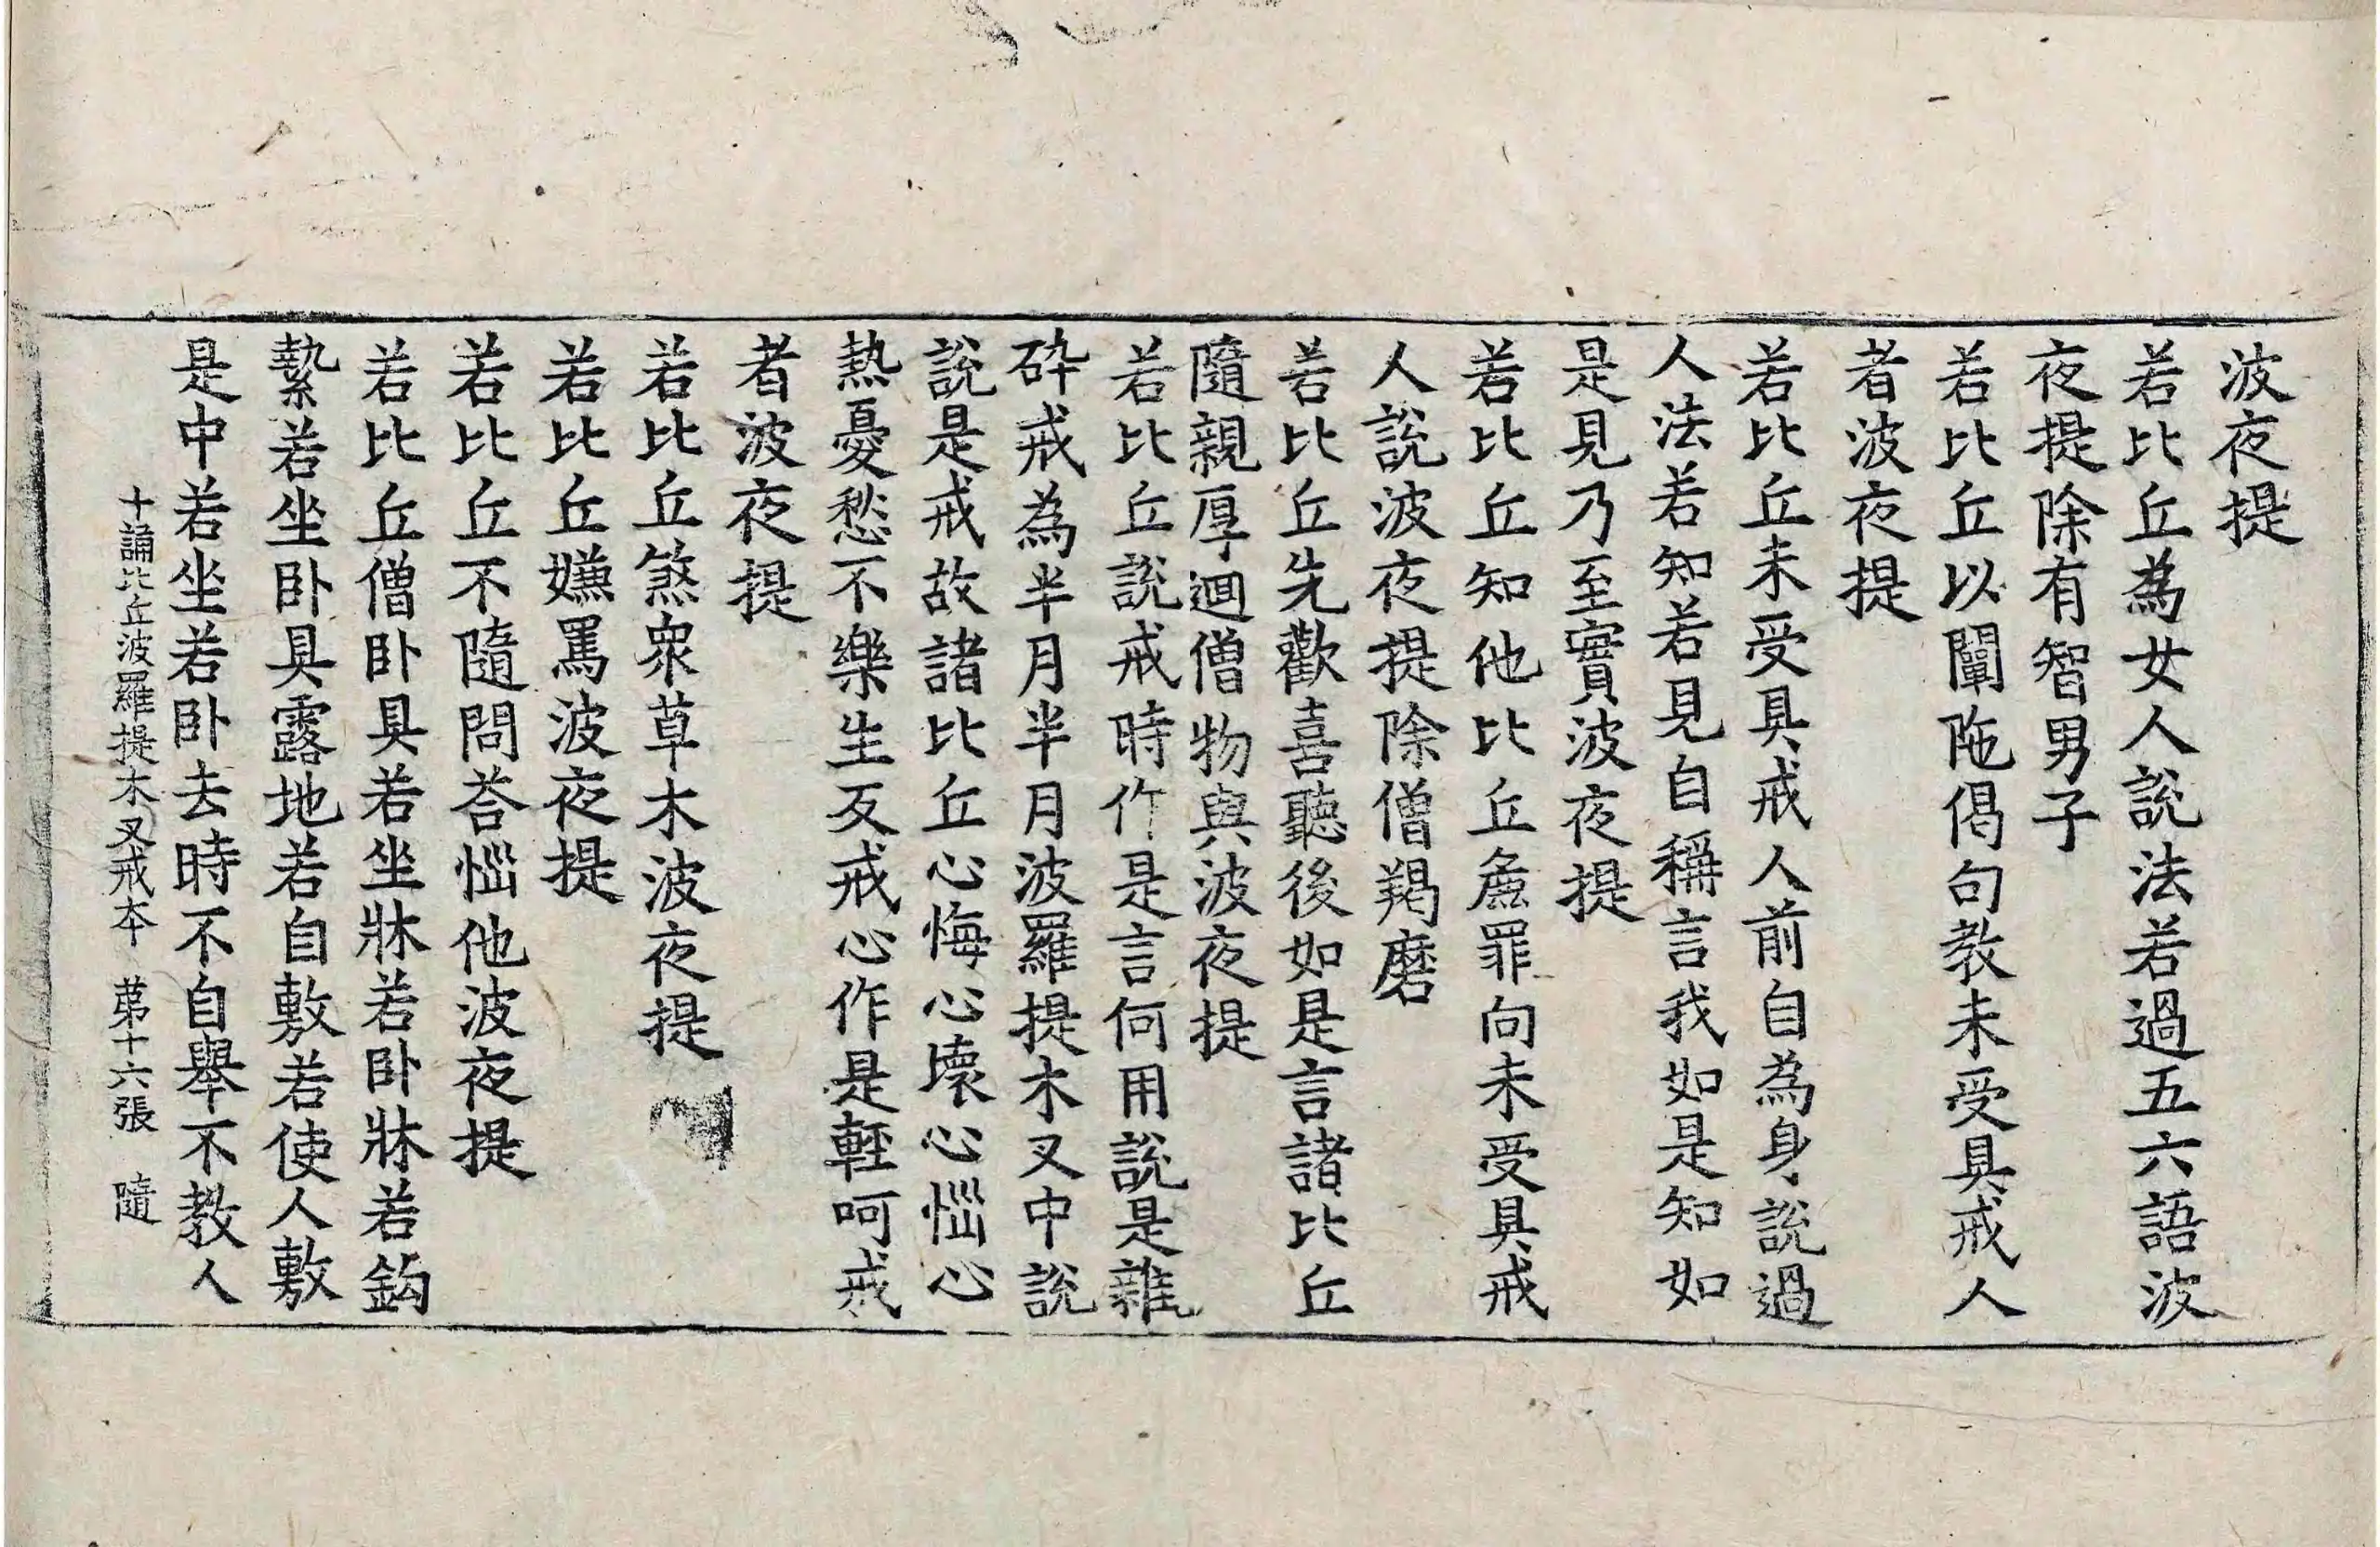 波夜提
若比丘為女人說法若過五六語波
夜提除有智男子
若比丘以闡陁偈句教未受具戒人
者波夜提
若比丘未受具戒人前自為身說過
人法若知若見自稱言我如是知如
是見乃至實波夜提
若比丘知他比丘麁罪向未受具戒
人說波夜提除僧羯磨
若比丘先歡喜聽後如是言諸比丘
隨親厚迴僧物與波夜提
若比丘說戒時作是言何用說是雜
碎戒為半月半月波羅提木叉中說
說是戒故諸比丘心悔心壞心惱心
熱憂愁不樂生反戒心作是輕呵戒
者波夜提
若比丘煞眾草木波夜提
若比丘嫌罵波夜提
若比丘不隨問荅惱他波夜提
若比丘僧卧具若坐牀若卧牀若鈎
縶若坐卧具露地若自敷若使人敷
是中若坐若卧去時不自舉不教人
十誦比丘波羅提木叉戒本 苐十六張 隨